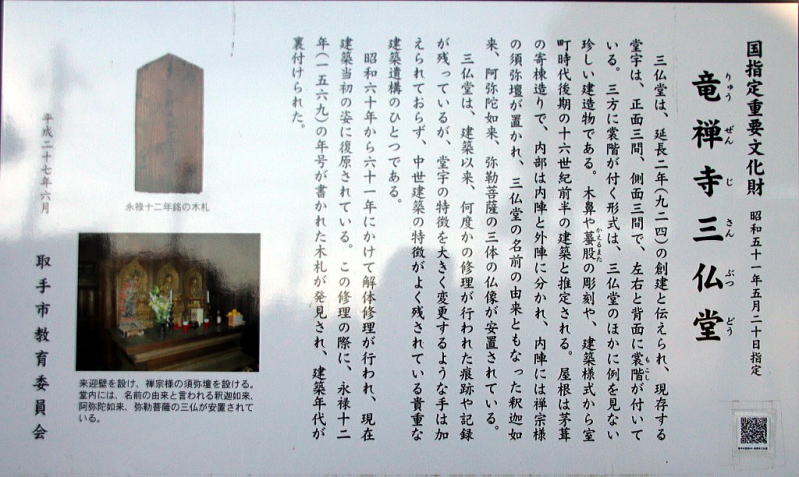 国指定重要文化財 昭和五十一年五月二十日指定
竜禅寺三仏堂
りゅう ぜん じ さん ぶつ どう
三仏堂は、延長二年(九二四)の創建と伝えられ、現存する
堂宇は、正面三間、側面三間で、左右と背面に裳階が付いて
もこし
いる。三方に裳階が付く形式は、三仏堂のほかに例を見ない
珍しい建造物である。木鼻や蟇股の彫刻や、建築様式から室
かえるまた
町時代後期の十六世紀前半の建築と推定される。屋根は茅葺
の寄棟造りで、内部は内陣と外陣に分かれ、内陣には禅宗様
の須弥壇が置かれ、三仏堂の名前の由来ともなった釈迦如
来、阿弥陀如来、弥勒菩薩の三体の仏像が安置されている。
三仏堂は、建築以来、何度かの修理が行われた痕跡や記録
が残っているが、堂宇の特徴を大きく変更するような手は加
えられておらず、中世建築の特徴がよく残されている貴重な
建築遺構のひとつである。
昭和六十年から六十一年にかけて解体修理が行われ、現在
建築当初の姿に復原されている。この修理の際に、永禄十二
年(一五六九)の年号が書かれた木札が発見され、建築年代が
裏付けられた。
永禄十二年銘の木札
来迎壁を設け、禅宗様の須弥壇を設ける。
堂内には、名前の由来と言われる釈迦如来、
阿弥陀如来、弥勒菩薩の三仏が安置されて
いる。
平成二十七年六月
取手市教育委員会